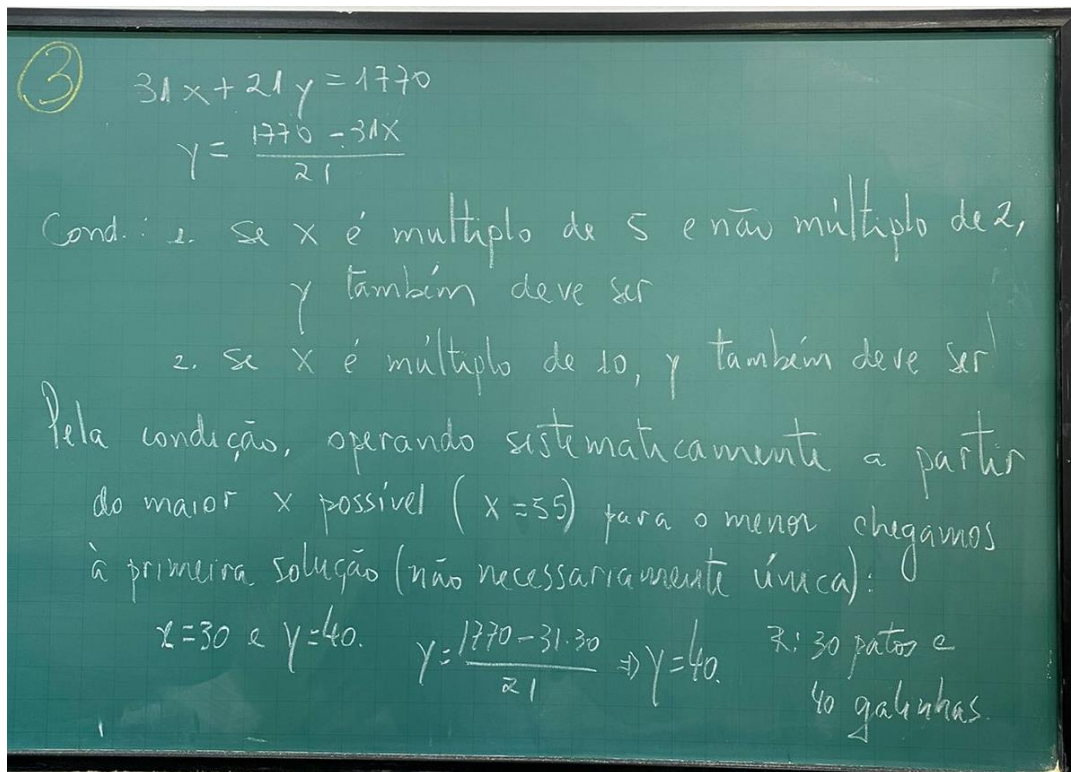 3
31x + 21y = 1770
y = 1770 - 31x / 21
Cond.: 1. se x é multiplo de 5 e não múltiplo de 2,
y também deve ser
2. se x é múltiplo de 10, y também deve ser
Pela condição, operando sistematicamente a partir
do maior x possível (x=55) para o menor chegamos
à primeira solução (não necessariamente única):
x=30 e y=40. y = 1770 - 31.30 / 21 ⇒ y=40. R: 30 patos e
40 galinhas.